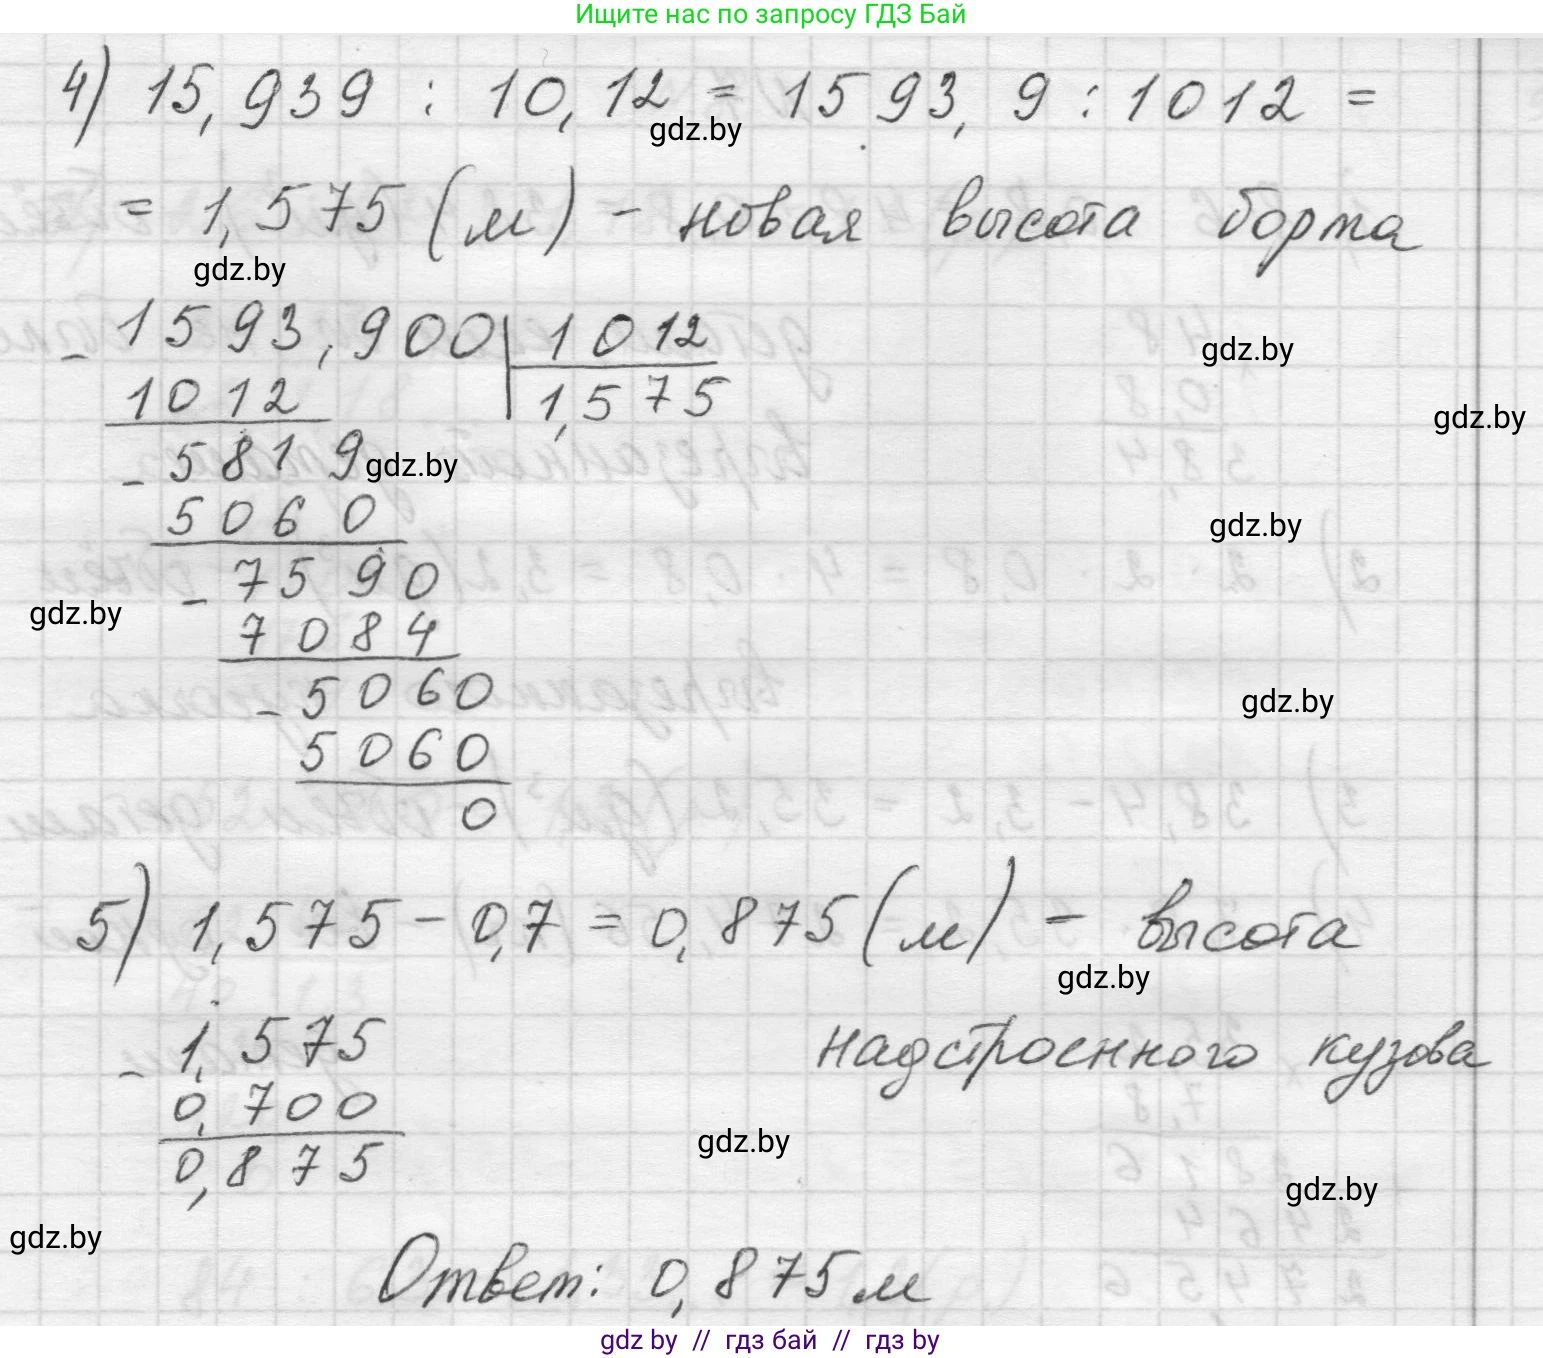 Ищите нас по запросу ГДЗ Бай
4) 15,939 : 10,12 = 1593,9 : 1012 =
gdz.by
= 1,575 (м) – новая высота борта
gdz.by
- 1593,900 | 1012
gdz.by
1012 1,575
gdz.by
- 5819
gdz.by
5060
gdz.by
- 7590
gdz.by
7084
- 5060
gdz.by
5060
0
5) 1,575 – 0,7 = 0,875 (м) – высота
gdz.by
надстроенного кузова
- 1,575
0,700
gdz.by
0,875
gdz.by
gdz.by
Ответ: 0,875 м
gdz by // гдз бай // гдз by